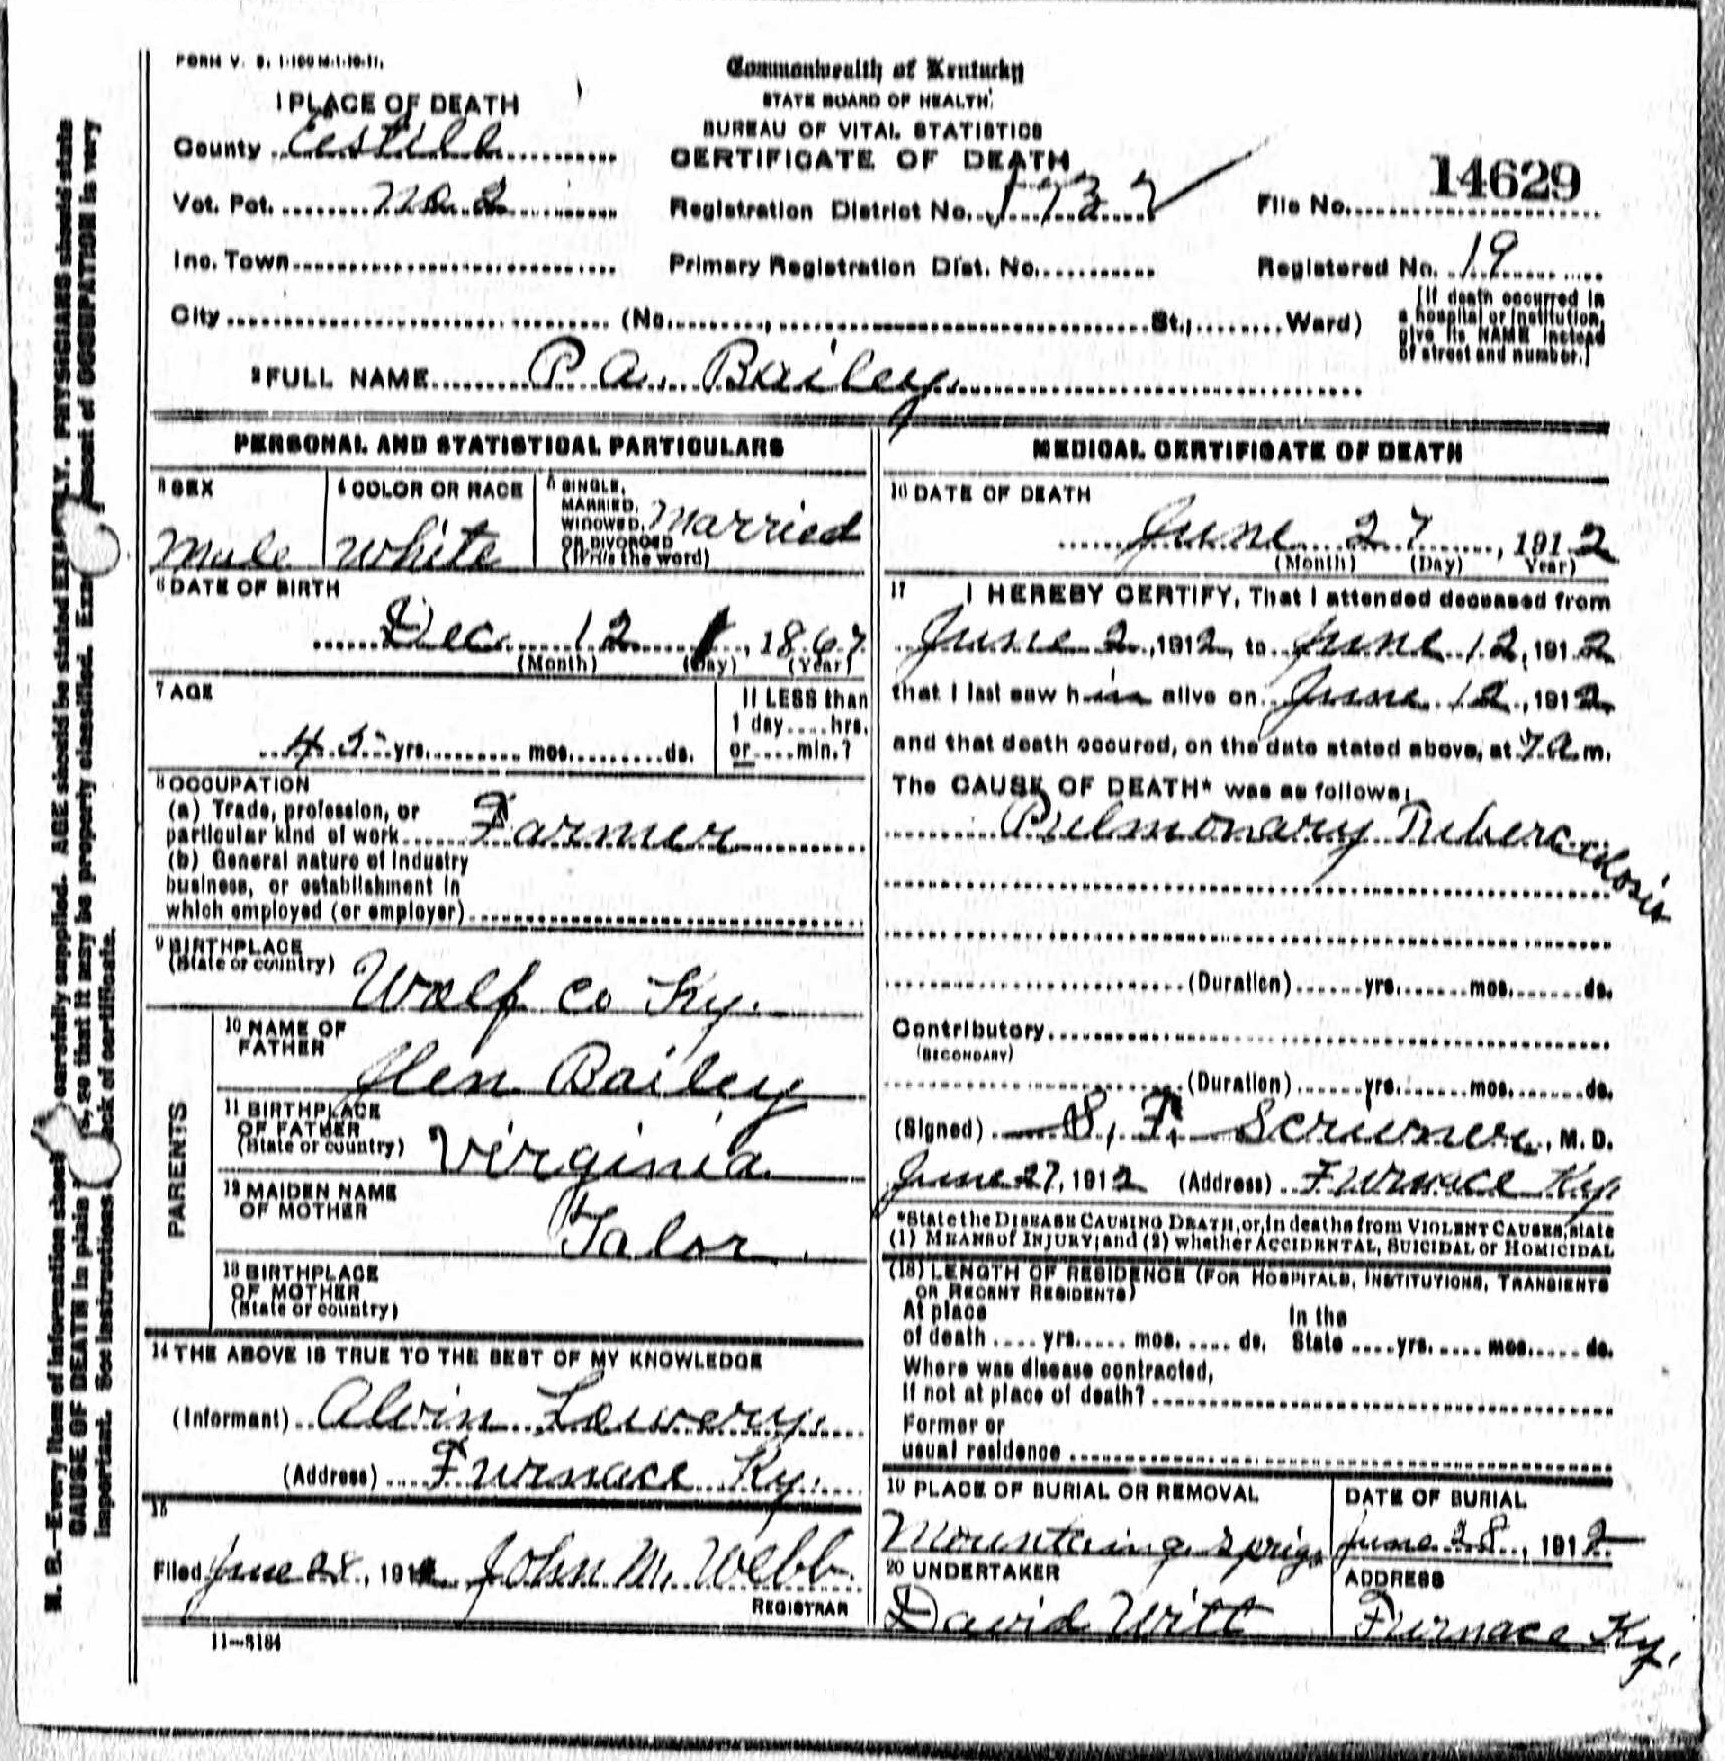 FORM V. S. 1-100 M-1-10-11.
Commonwealth of Kentucky
STATE BOARD OF HEALTH.
BUREAU OF VITAL STATISTICS
CERTIFICATE OF DEATH
1 PLACE OF DEATH
County Estill
Vot. Pct. No 2
Registration District No.
File No. 14629
Inc. Town
Primary Registration Dist. No.
Registered No. 19
City (No. , St.; Ward)
[If death occurred in
a hospital or institution,
give its NAME instead
of street and number.]
2 FULL NAME P A. Bailey
PERSONAL AND STATISTICAL PARTICULARS
3 SEX
Male
4 COLOR OR RACE
White
5 SINGLE,
MARRIED,
WIDOWED,
OR DIVORCED
(Write the word)
Married
6 DATE OF BIRTH
Dec. 12 , 1867
(Month) (Day) (Year)
7 AGE
45 yrs. mos. ds.
If LESS than
1 day....hrs.
or....min.?
8 OCCUPATION
(a) Trade, profession, or
particular kind of work Farmer
(b) General nature of industry
business, or establishment in
which employed (or employer)
9 BIRTHPLACE
(State or country) Wolf co Ky.
PARENTS
10 NAME OF
FATHER
Bailey
11 BIRTHPLACE
OF FATHER
(State or country) Virginia
12 MAIDEN NAME
OF MOTHER
Talor
13 BIRTHPLACE
OF MOTHER
(State or country)
14 THE ABOVE IS TRUE TO THE BEST OF MY KNOWLEDGE
(Informant) Alvin Lowery.
(Address) Furnace Ky.
15
Filed June 28, 191 John M. Webb
REGISTRAR
11—3184
MEDICAL CERTIFICATE OF DEATH
16 DATE OF DEATH
June 27 , 1912
(Month) (Day) Year)
17 I HEREBY CERTIFY, That I attended deceased from
June 2, 1912, to June 12, 1912
that I last saw him alive on June 12, 1912,
and that death occured, on the date stated above, at 7 a m.
The CAUSE OF DEATH* was as follows:
Pulmonary Tuberculosis
(Duration) yrs. mos. ds.
Contributory
(SECONDARY)
(Duration) yrs. mos. ds.
(Signed) S. F. Scrivner, M. D.
June 27, 1912 (Address) Furnace Ky.
*State the DISEASE CAUSING DEATH, or, in deaths from VIOLENT CAUSES, state
(1) MEANS of INJURY; and (2) whether ACCIDENTAL, SUICIDAL or HOMICIDAL
(18) LENGTH OF RESIDENCE (FOR HOSPITALS, INSTITUTIONS, TRANSIENTS
OR RECENT RESIDENTS)
At place
of death yrs. mos. ds.
In the
State yrs. mos. ds.
Where was disease contracted,
If not at place of death?
Former or
usual residence
19 PLACE OF BURIAL OR REMOVAL
DATE OF BURIAL
June 28, 1912
20 UNDERTAKER
David Witt
ADDRESS
Furnace Ky.
N. B.—Every item of information carefully supplied. AGE should be stated PHYSICIANS should state
CAUSE OF DEATH in plain so that it may be properly classified. of OCCUPATION is very
important. See instructions of certificate.